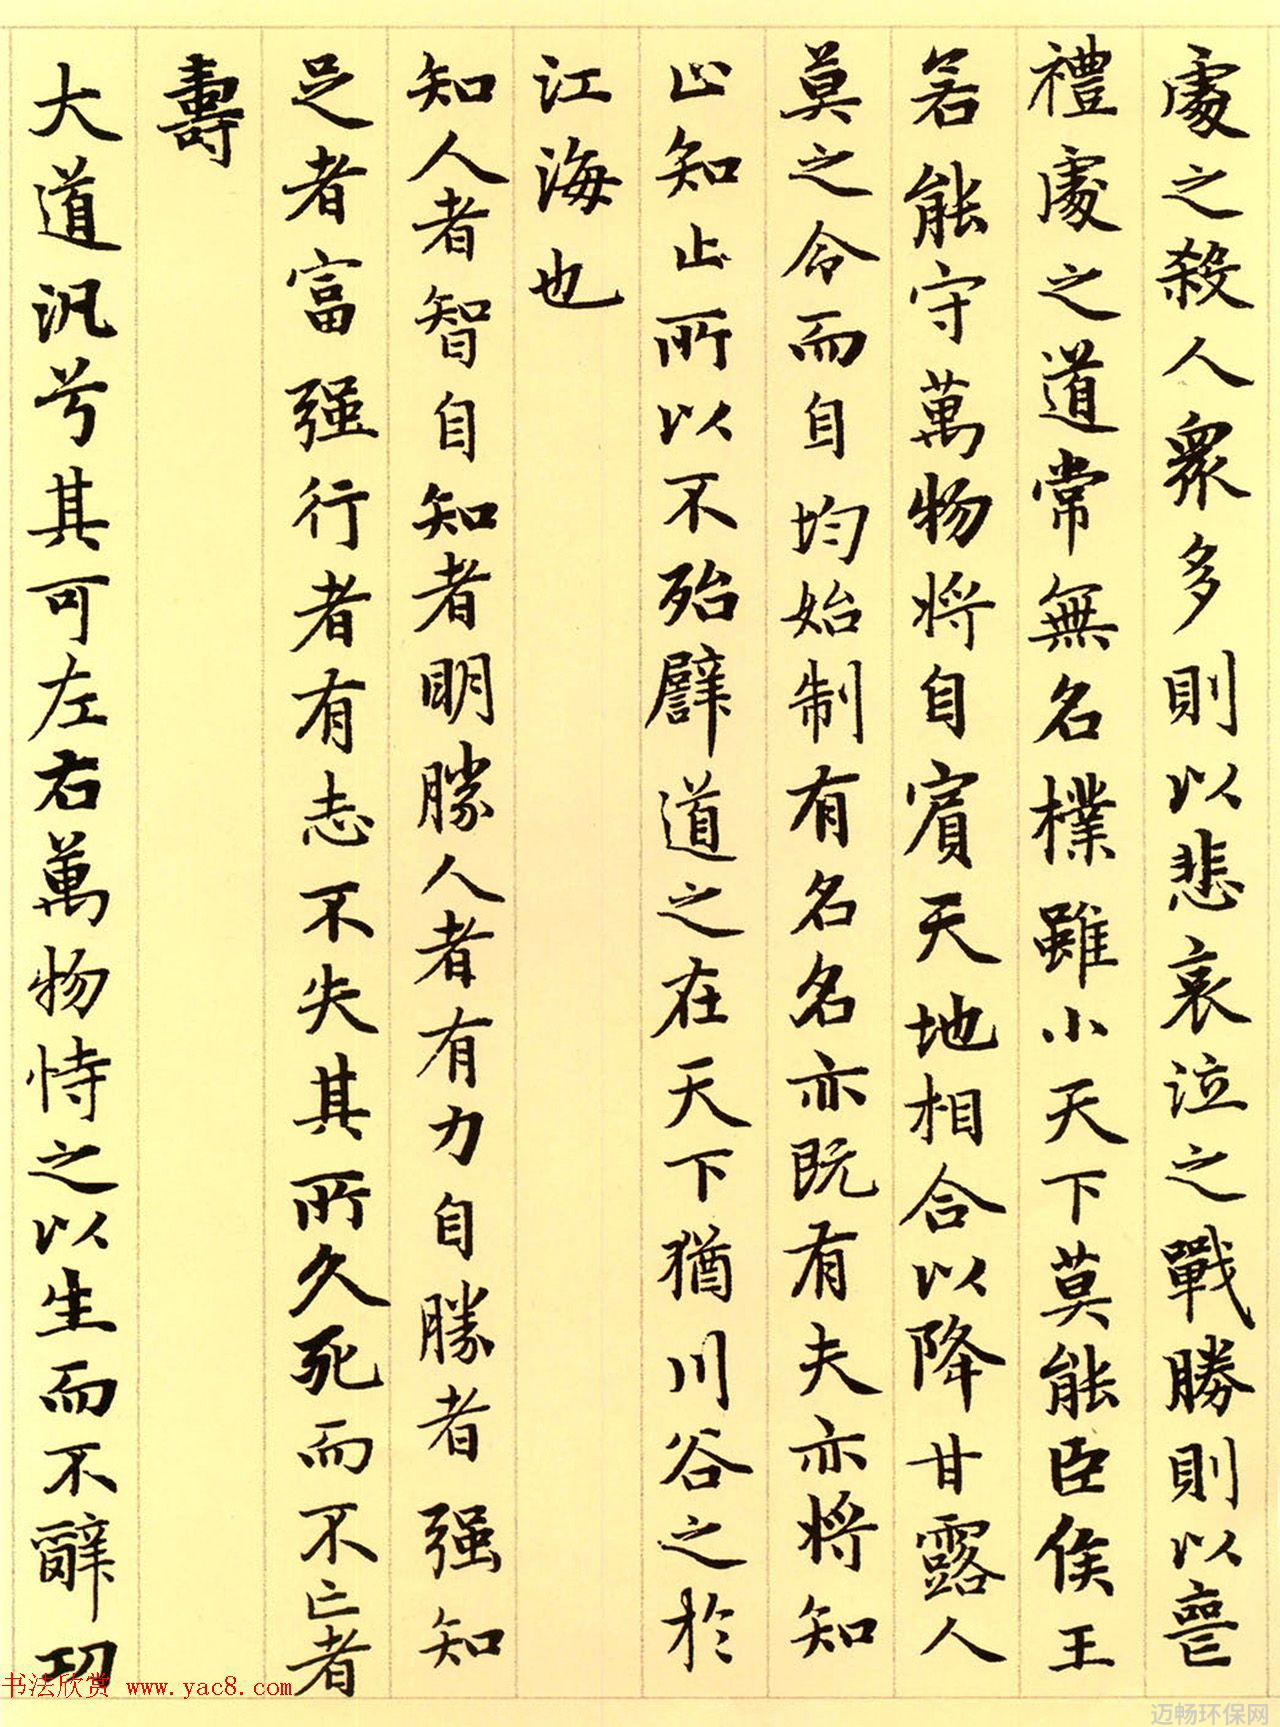 處之殺人眾多則以悲哀泣之戰勝則以喪
禮處之道常無名樸雖小天下莫能臣侯王
若能守萬物將自賓天地相合以降甘露人
莫之令而自均始制有名名亦既有夫亦將知
止知止所以不殆譬道之在天下猶川谷之於
江海也
知人者智自知者明勝人者有力自勝者强知
足者富强行者有志不失其所久死而不亡者
壽
大道汎兮其可左右萬物恃之以生而不辭功
书法欣赏 www.yac8.com
迈畅环保网